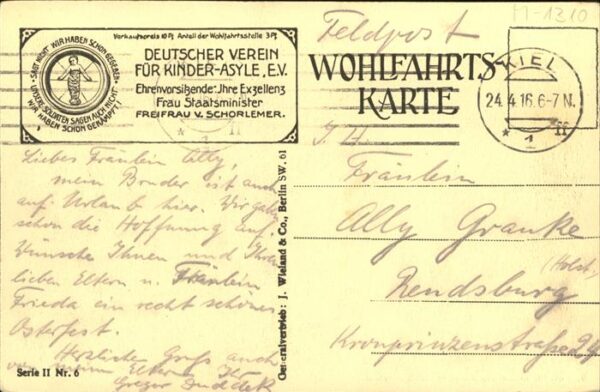 M-1310
Feldpost
Verkaufspreis 10 Pf. Anteil der Wohlfahrtsstelle 3 Pf.
SAGT NICHT WIR HABEN SCHON GEGEBEN
UNSERE SOLDATEN SAGEN AUCH NICHT
WIR HABEN SCHON GEKÄMPFT!
DEUTSCHER VEREIN
FÜR KINDER-ASYLE, E.V.
Ehrenvorsitzende: Ihre Exzellenz
Frau Staatsminister
FREIFRAU V. SCHORLEMER.
WOHLFAHRTS-
KARTE
KIEL
24.4.16.6-7N.
* 1 ff
Liebes Fräulein Ally,
mein Bruder ist auch
auf Urlaub hier. Wir gaben
schon die Hoffnung auf.
Wünsche Ihnen und Ihren
lieben Eltern u. Fräulein
Frieda ein recht schönes
Osterfest.
Herzlichen Gruß auch
von meinen Eltern Ihr
Gregor
Generalvertrieb: J. Wieland & Co., Berlin SW. 61
Fräulein
Ally Granke
Rendsburg
(Holst.)
Kronprinzenstraße
Serie II Nr. 6